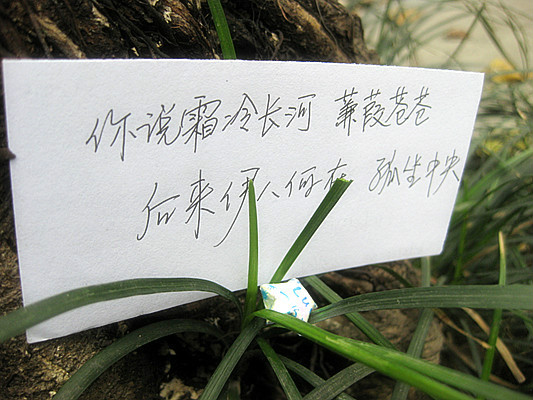 你说霜冷长河 蒹葭苍苍
后来伊人何在 孤坐中央